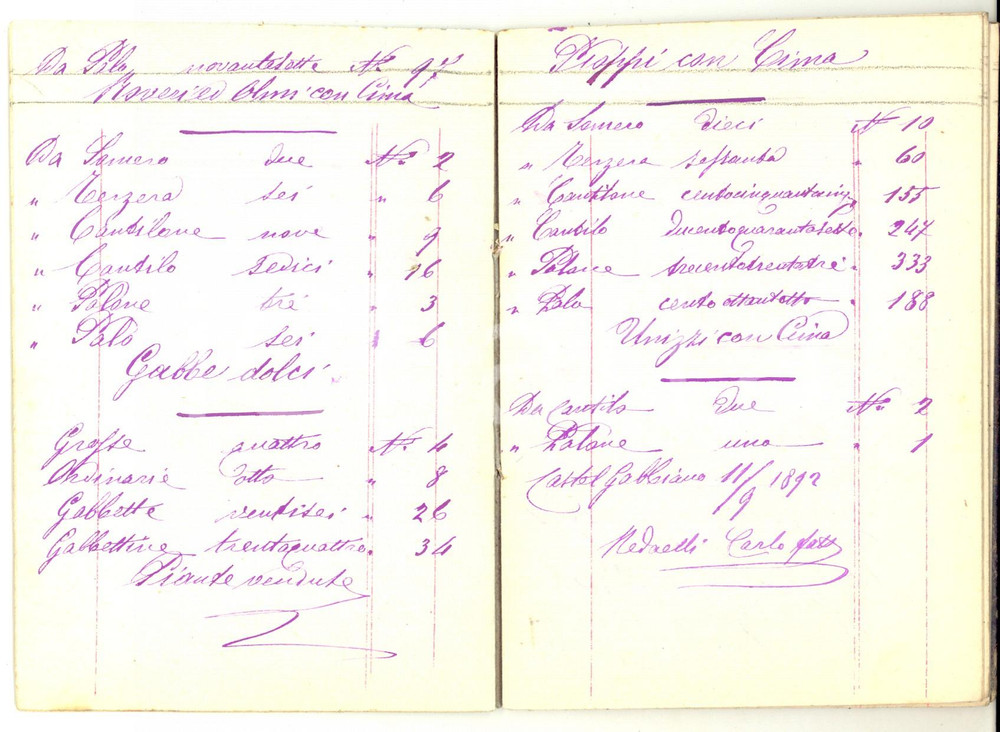 Da Palo novantasette N.º 97
Roveri ed Olmi con Cima
Da Somero due N.º 2
" Terzera sei " 6
" Cantilone nove " 9
" Cantilo sedici " 16
" Palone tré " 3
" Palo sei " 6
Gabbe dolci
Grosse quattro N.º 4
Ordinarie otto " 8
Gabbette ventisei " 26
Gabbettine trentaquattro " 34
Piante vendute
Pioppi con Cima
Da Somero dieci N.º 10
" Terzera sessanta " 60
" Cantilone centocinquantacinq " 155
" Cantilo duentoquarantasette " 247
" Palone trecentotrentatré " 333
" Palo cento ottantotto " 188
Unizzi con Cima
Da Cantilo due N.º 2
" Palone uno " 1
Castel Gabbiano 11/9 1892
Redaelli Carlo fatt